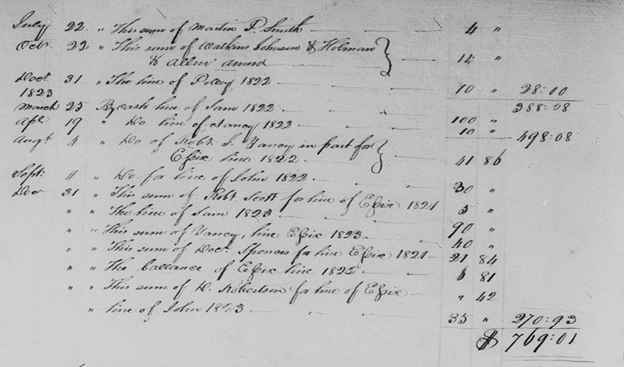 July 22. " This sum of Martin P. Smith 4 "
Octr 22 " This sum of Watkins Johnson & Holman
& Allen amnd 14 "
Dect 31 " The hire of Polley 1822 10 " 28:00
1823 388:08
March 25 By cash hire of Sam 1822 100 "
Apl 19 " Do hire of Nancy 1822 10 " 498:08
Augt 4 " Do of Robt. J. Yancy in part for
Essix hire 1822 41 86
Sept. 11 " Do for hire of John 1822 30 "
Dec 31 " This sum of Robt Scott for hire of Essix 1821 5 "
" " The hire of Sam 1823 90 "
" " This sum of Yancy, hire Essix 1823 40 "
" " This sum of Doct. Spencer for hire Essix 1821 21 84
" " The ballance of Essix hire 1822 5 81
" " This sum of W. Robertson for hire of Essix " 42
" hire of John 1823 35 " 270:93
$ 769:01